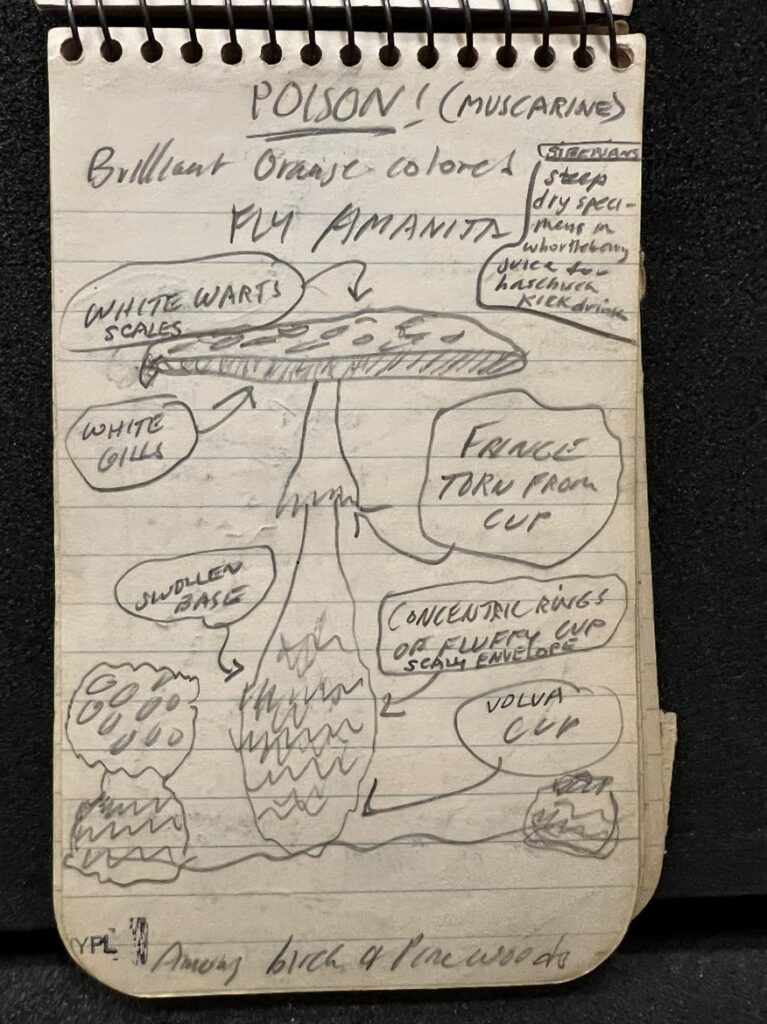 POISON! (MUSCARINE)
Brilliant Orange colored
FLY AMANITA
SIBERIANS
steep
dry speci-
mens in
whortleberry
juice for
KICK drink
WHITE WARTS
SCALES
WHITE
GILLS
FRINGE
TORN FROM
CUP
SWOLLEN
BASE
CONCENTRIC RINGS
OF FLUFFY CUP
SCALY ENVELOPE
VOLVA
CUP
YPL
Among birch & Pine woods